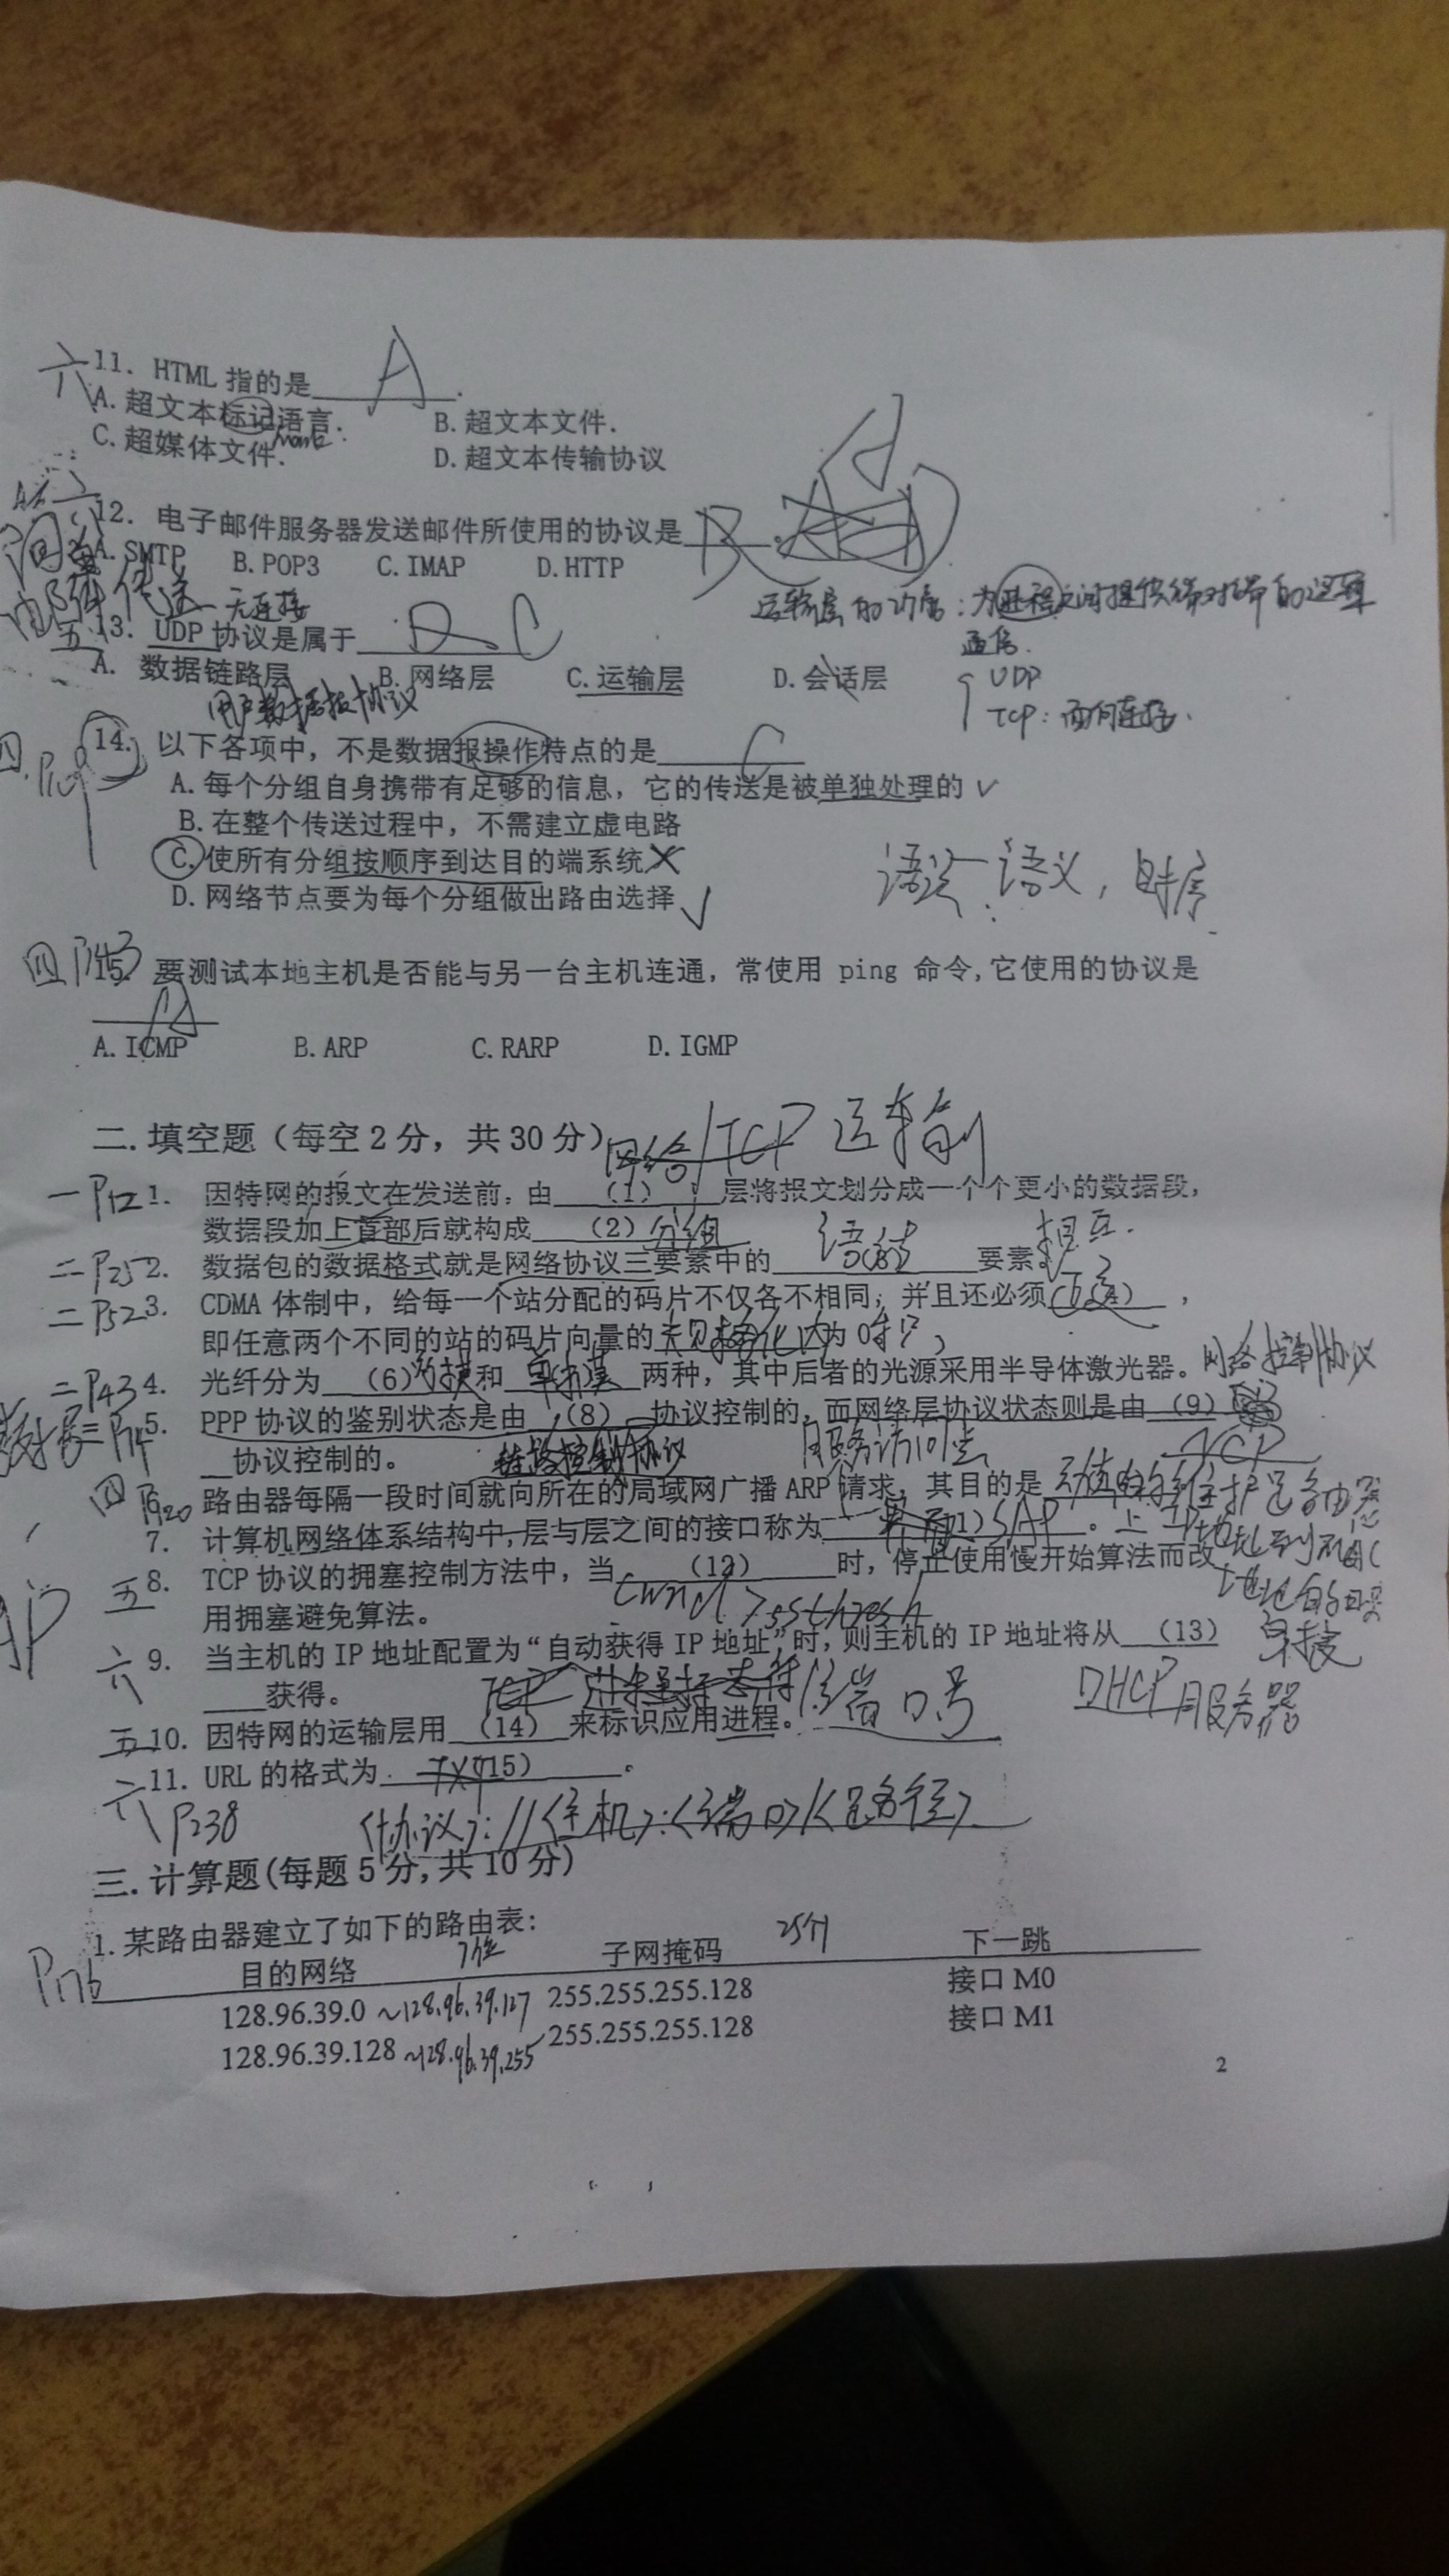 六 11. HTML 指的是 A .
A. 超文本标记语言. B. 超文本文件.
C. 超媒体文件. D. 超文本传输协议
12. 电子邮件服务器发送邮件所使用的协议是
A. SMTP B. POP3 C. IMAP D. HTTP
无连接 运输层的功能：为进程之间提供端对端的逻辑
通信.
五 13. UDP 协议是属于 C
A. 数据链路层 B. 网络层 C. 运输层 D. 会话层
UDP
用户数据报协议 TCP：面向连接.
四. 14. 以下各项中，不是数据报操作特点的是 C
A. 每个分组自身携带有足够的信息，它的传送是被单独处理的 √
B. 在整个传送过程中，不需建立虚电路
C. 使所有分组按顺序到达目的端系统 ×
D. 网络节点要为每个分组做出路由选择 √
语义，时序
四 15 要测试本地主机是否能与另一台主机连通，常使用 ping 命令,它使用的协议是
A
A. ICMP B. ARP C. RARP D. IGMP
二.填空题（每空2分，共30分）
网络/TCP 运输
一 P12 1. 因特网的报文在发送前，由 （1） 层将报文划分成一个个更小的数据段，
数据段加上首部后就构成 （2）分组
二 P25 2. 数据包的数据格式就是网络协议三要素中的 （3） 要素。
相互.
二 P52 3. CDMA 体制中，给每一个站分配的码片不仅各不相同，并且还必须 （4） ，
即任意两个不同的站的码片向量的 为 0
二 P43 4. 光纤分为 （6） 和 单模 两种，其中后者的光源采用半导体激光器。
网络控制协议
5. PPP 协议的鉴别状态是由 （8） 协议控制的，而网络层协议状态则是由 （9）
协议控制的。 链路控制协议 服务访问点
四 路由器每隔一段时间就向所在的局域网广播 ARP 请求，其目的是
7. 计算机网络体系结构中,层与层之间的接口称为 SAP 。
五 8. TCP 协议的拥塞控制方法中，当 （12） 时，停止使用慢开始算法而改
cwnd > ssthresh
用拥塞避免算法。
六 9. 当主机的 IP 地址配置为“自动获得 IP 地址”时，则主机的 IP 地址将从 （13）
获得。 端口号 DHCP服务器
五 10. 因特网的运输层用 （14） 来标识应用进程。
六 11. URL 的格式为 （15） 。
P238 <协议>://<主机>:<端口>/<路径>
三.计算题(每题5分,共10分)
1.某路由器建立了如下的路由表：
P176 目的网络 7位 子网掩码 25个1 下一跳
128.96.39.0 ~128.96.39.127 255.255.255.128 接口 M0
128.96.39.128 ~128.96.39.255 255.255.255.128 接口 M1
2